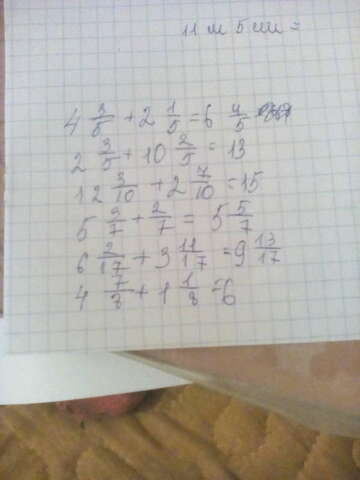 11 м 5 см =
4 3/5 + 2 1/5 = 6 4/5
2 3/5 + 10 2/5 = 13
12 3/10 + 2 7/10 = 15
5 3/7 + 2/7 = 5 5/7
6 2/17 + 3 11/17 = 9 13/17
4 7/8 + 1 1/8 = 6